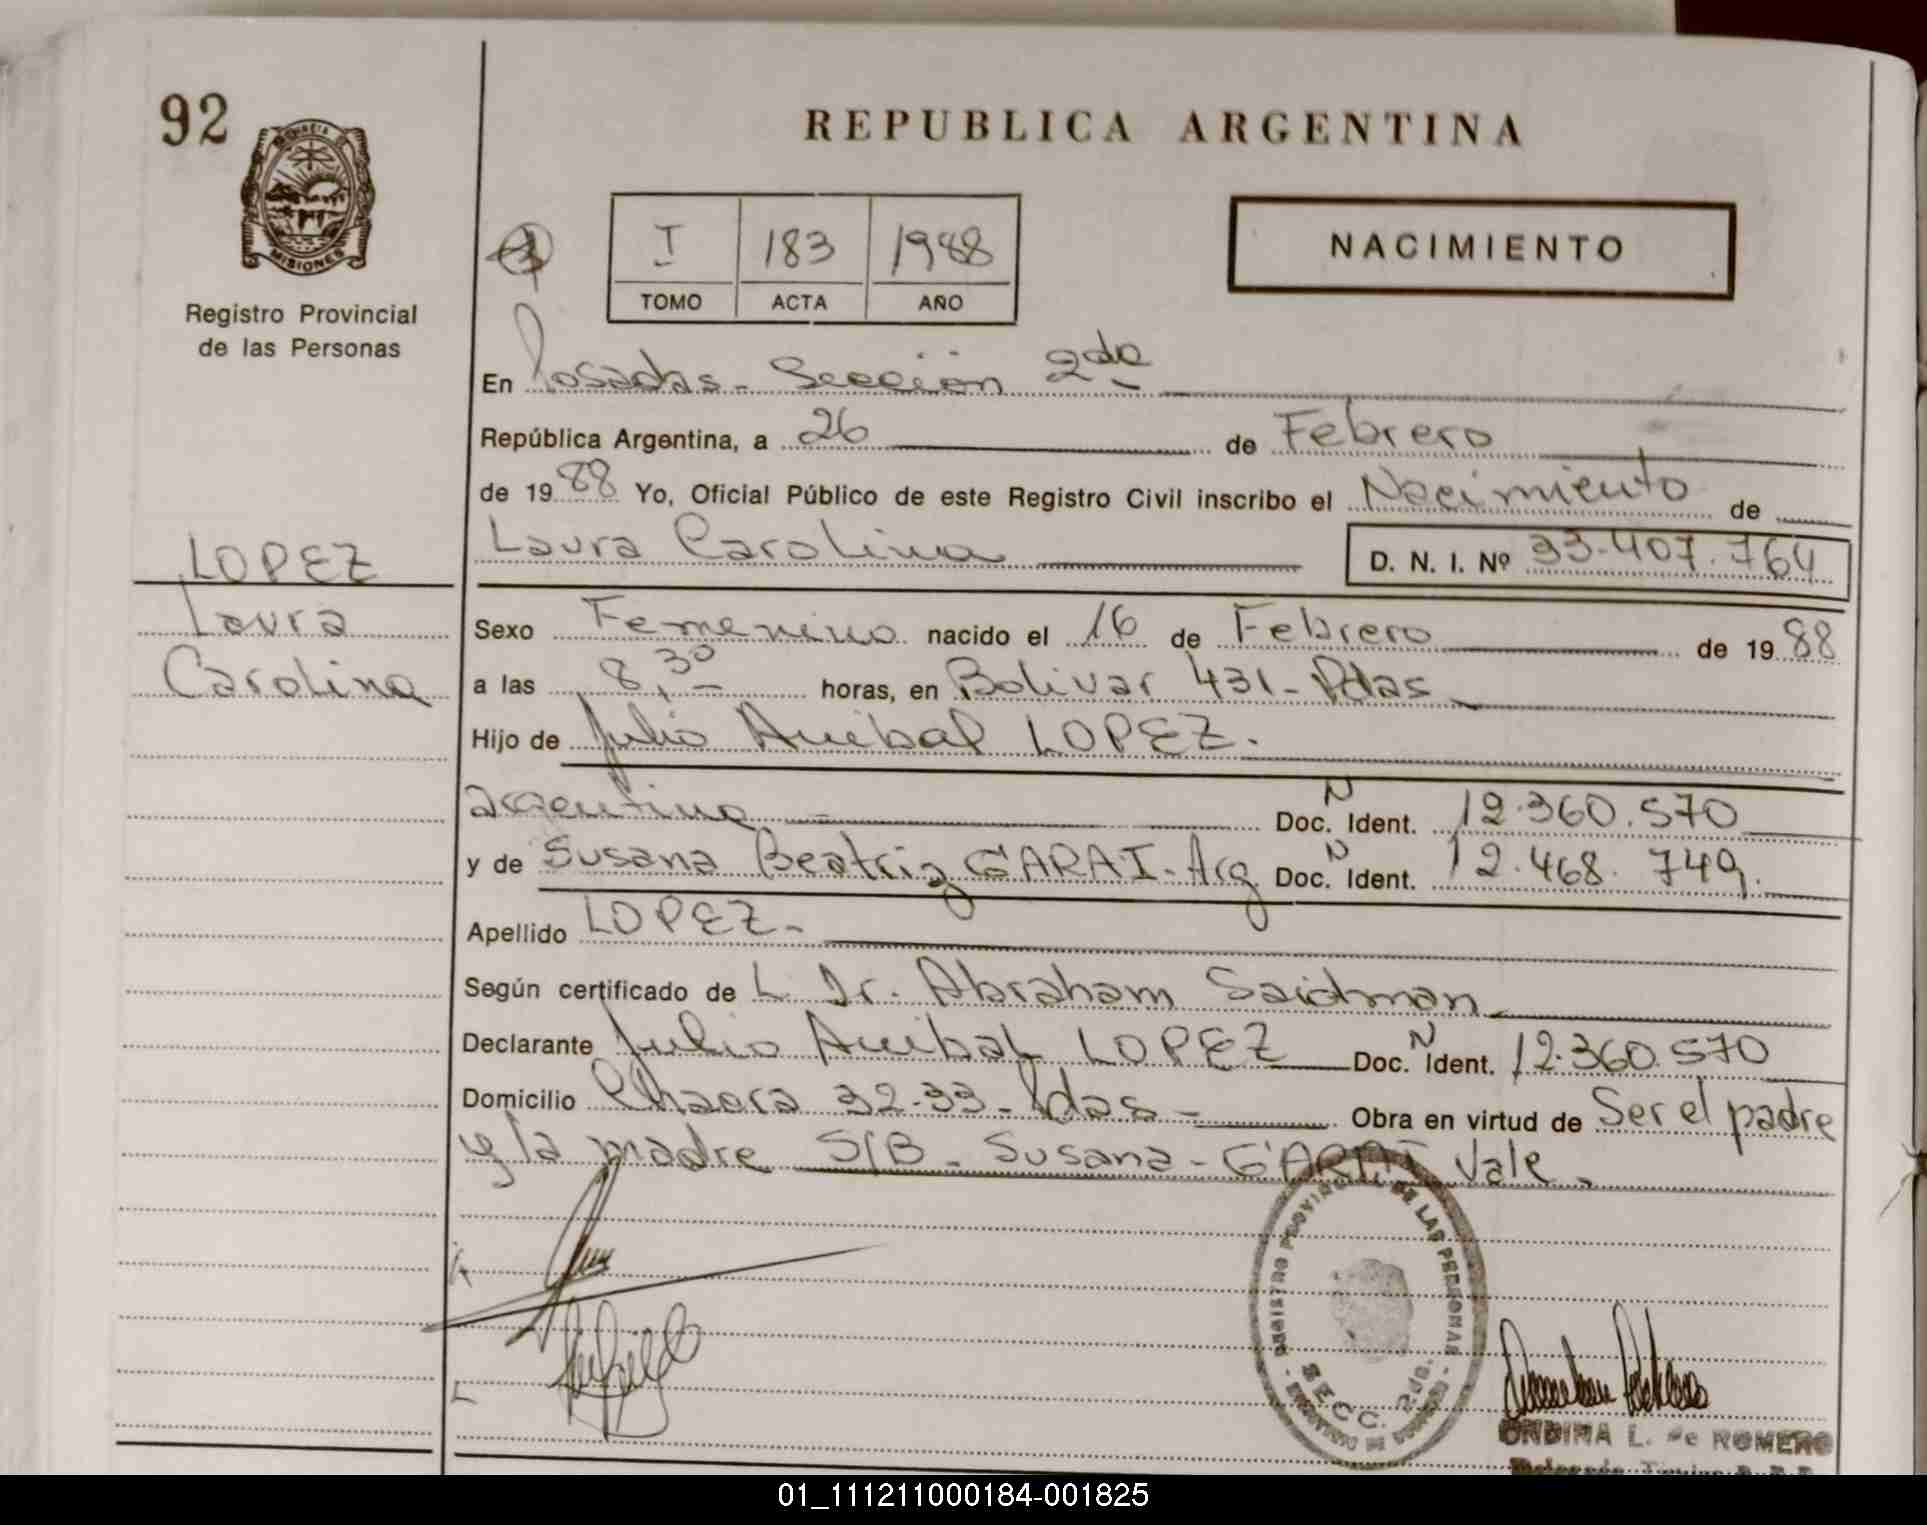 92
REPUBLICA ARGENTINA
MISIONES
Registro Provincial
de las Personas
I 183 1988
TOMO ACTA AÑO
NACIMIENTO
En Posadas - Sección 2da
República Argentina, a 26 de Febrero
de 1988 Yo, Oficial Público de este Registro Civil inscribo el Nacimiento de
Laura Carolina
D. N. I. Nº 33.407.764
LOPEZ
Laura
Carolina
Sexo Femenino nacido el 16 de Febrero de 1988
a las 8,30 horas, en Bolivar 431 - Pdas
Hijo de Julio Anibal LOPEZ.
argentino - Doc. N Ident. 12.360.570
y de Susana Beatriz GARAI - Arg Doc. N Ident. 12.468.749.
Apellido LOPEZ -
Según certificado de L Dr. Abraham Saidman
Declarante Julio Anibal LOPEZ Doc. N Ident. 12.360.570
Domicilio Chacra 32-33 - Pdas - Obra en virtud de Ser el padre
y la madre S/B - Susana - GARAI Vale.
REGISTRO PROVINCIAL DE LAS PERSONAS
SECC. 2da.
ONDINA L. de ROMERO
01_111211000184-001825